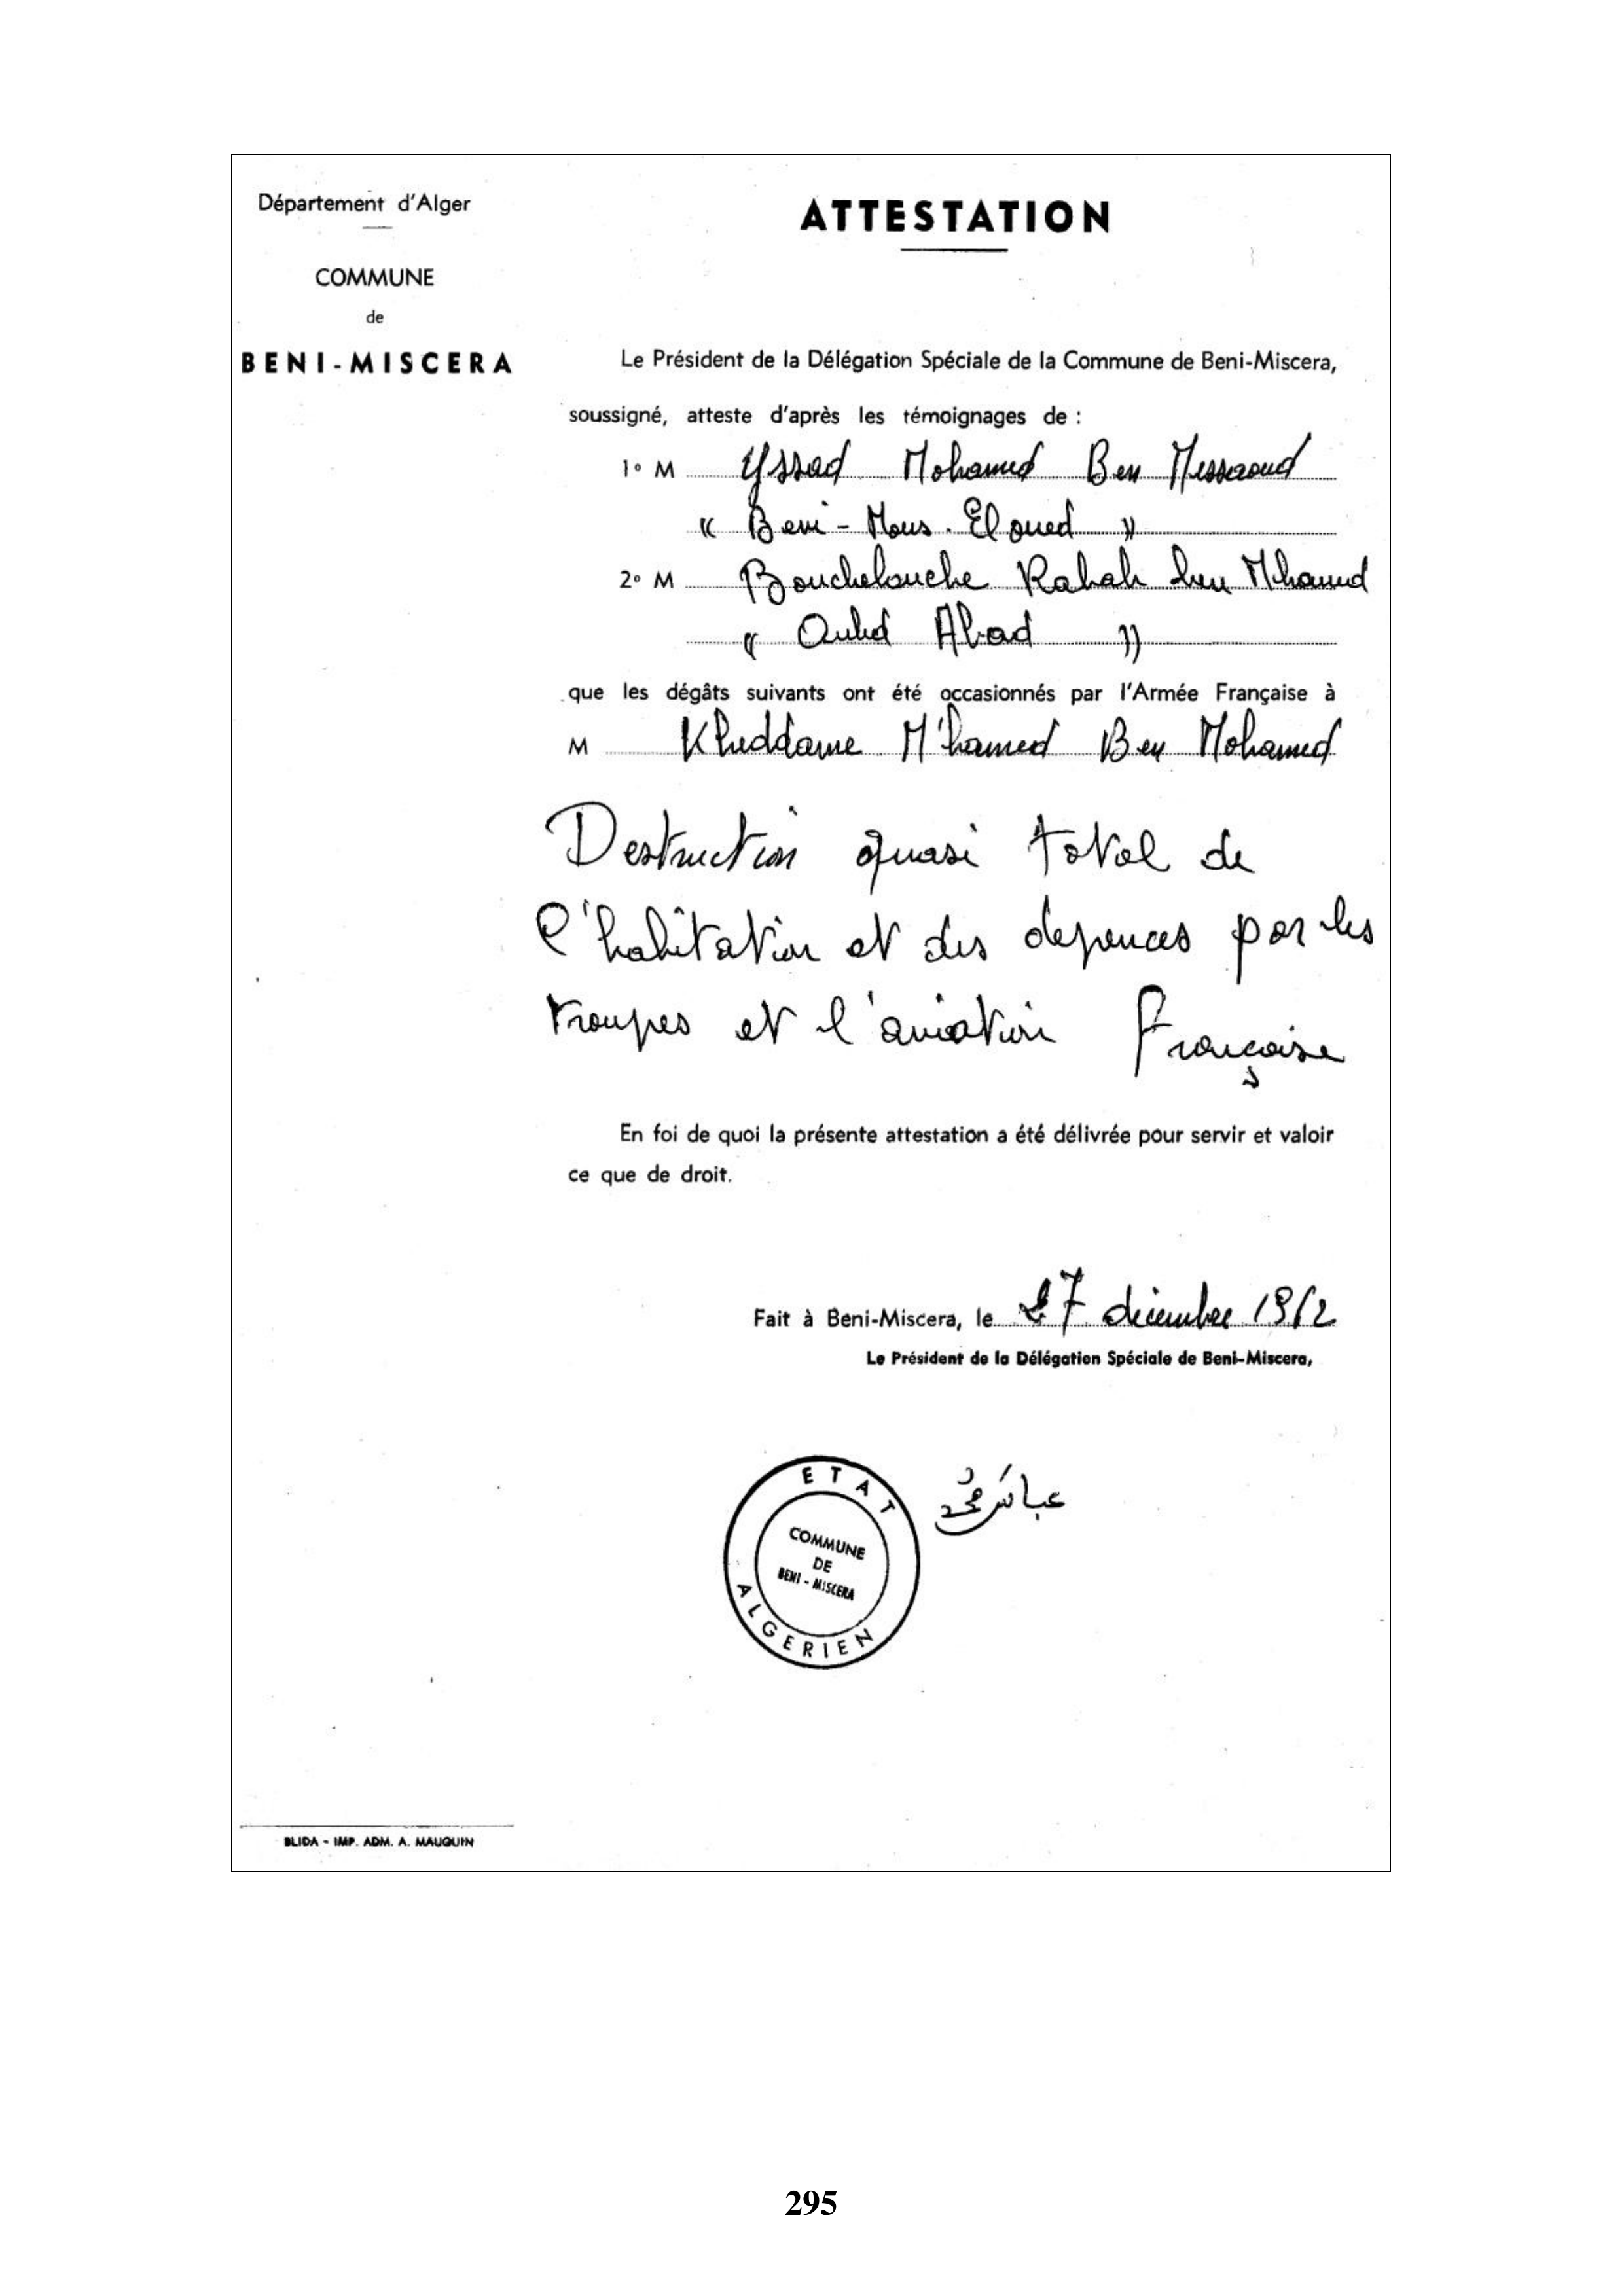 Département d'Alger
COMMUNE
de
BENI-MISCERA
ATTESTATION
Le Président de la Délégation Spéciale de la Commune de Beni-Miscera,
soussigné, atteste d'après les témoignages de :
1° M Yssad Mohamed Ben Messaoud
« Beni-Mous. El oued »
2° M Bouchelouche Rabah ben Mhamed
« Ouled Abad »
que les dégâts suivants ont été occasionnés par l'Armée Française à
M Kheddame M'hamed Ben Mohamed
Destruction quasi total de
l'habitation et des depences par les
troupes et l'aviation Française
En foi de quoi la présente attestation a été délivrée pour servir et valoir
ce que de droit.
Fait à Beni-Miscera, le 27 décembre 1962
Le Président de la Délégation Spéciale de Beni-Miscera,
ETAT
COMMUNE
DE
BENI - MISCERA
ALGERIEN
عباس محمد
BLIDA - IMP. ADM. A. MAUQUIN
295